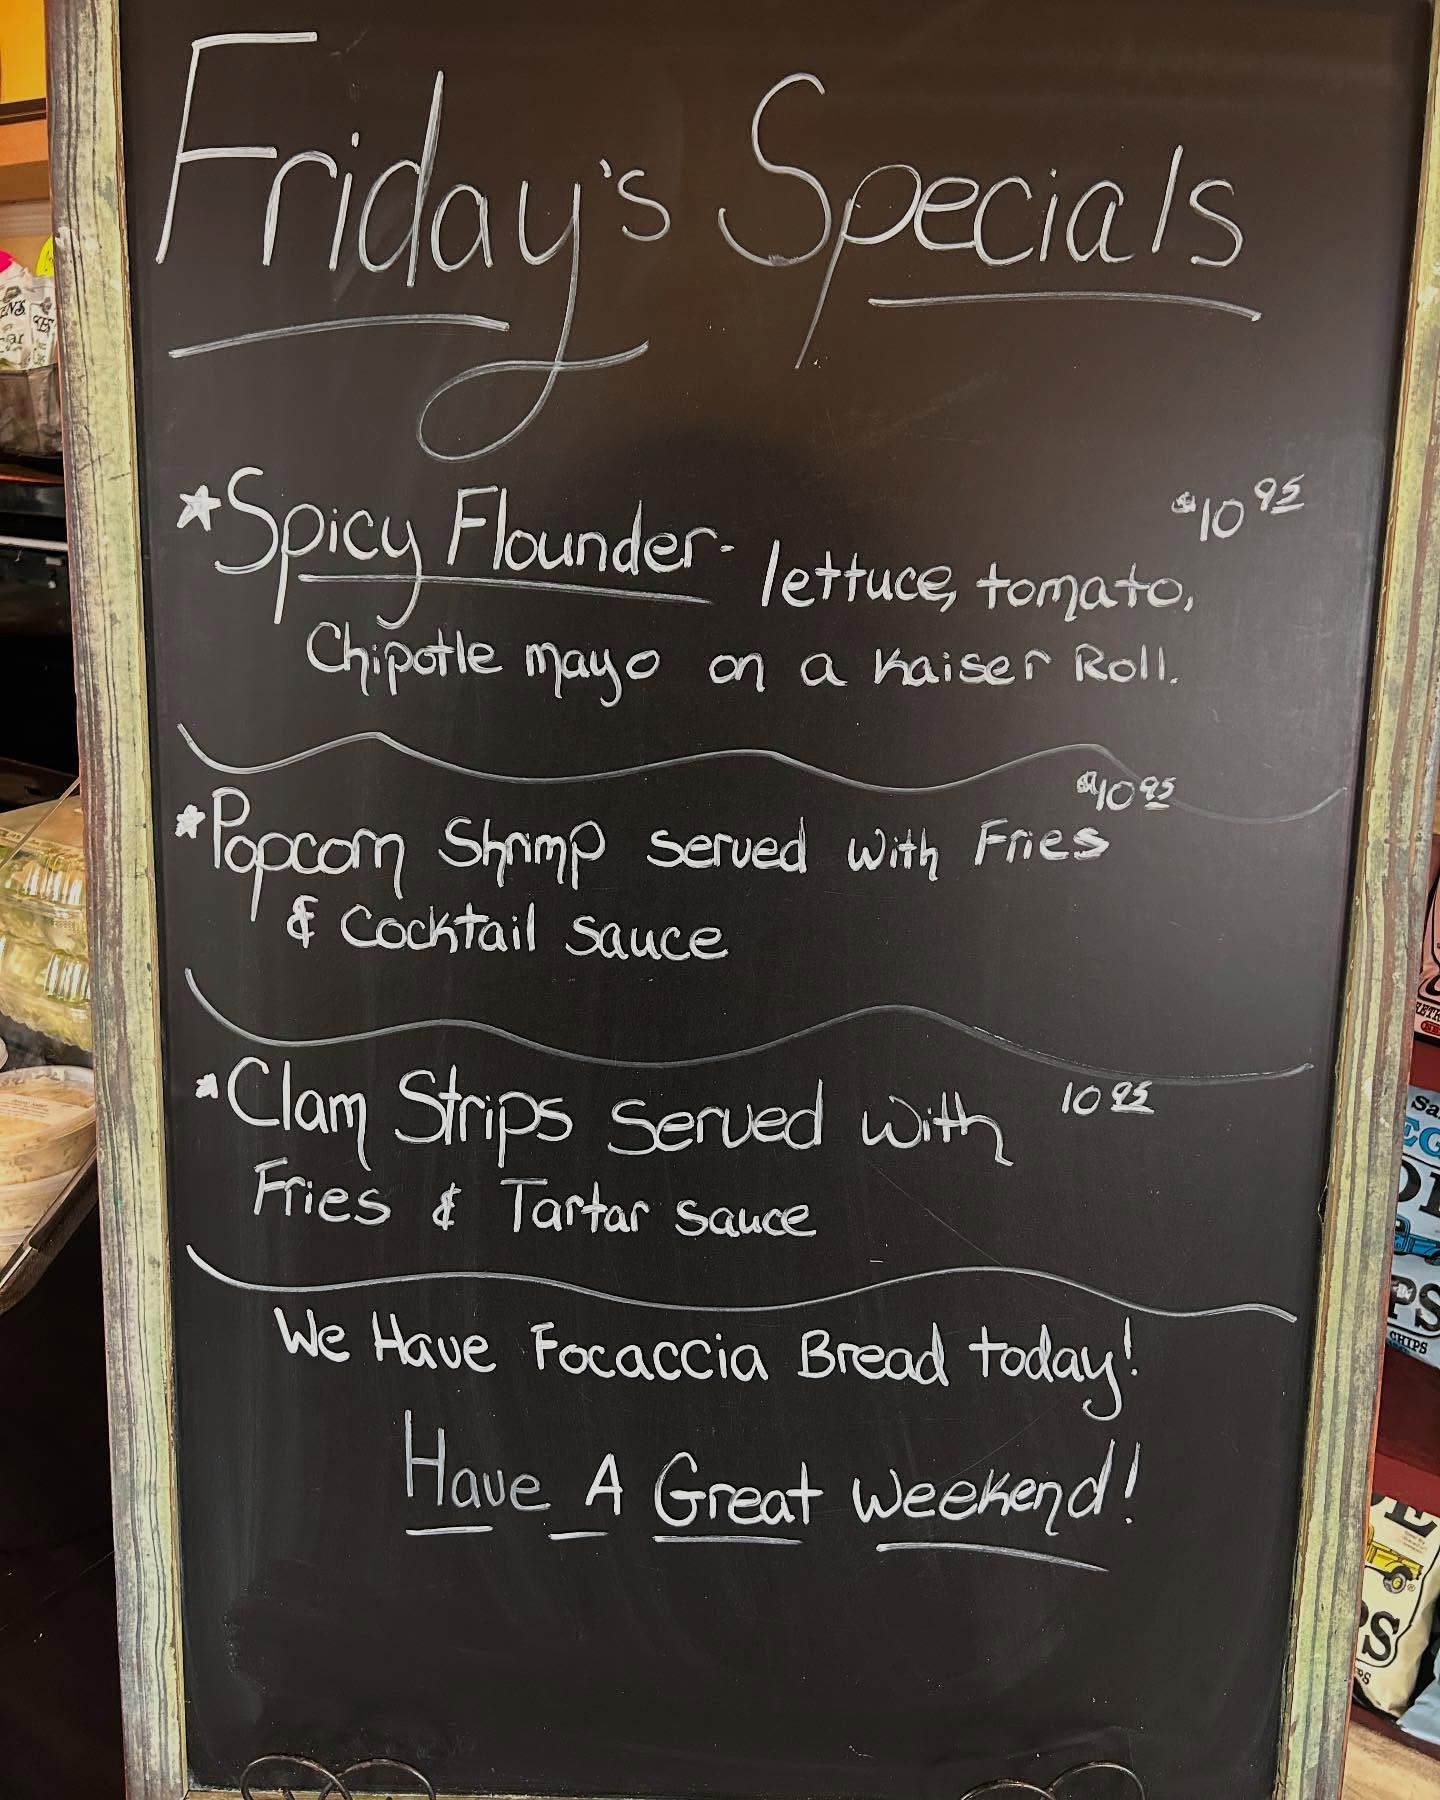 Friday's Specials
$10 95
Spicy Flounder - lettuce, tomato,
Chipotle mayo on a Kaiser Roll.
$10 95
Popcorn Shrimp served with Fries
& Cocktail sauce
Clam Strips served with 10 95
Fries & Tartar sauce
We Have Focaccia Bread today!
Have A Great Weekend!
CHIPS